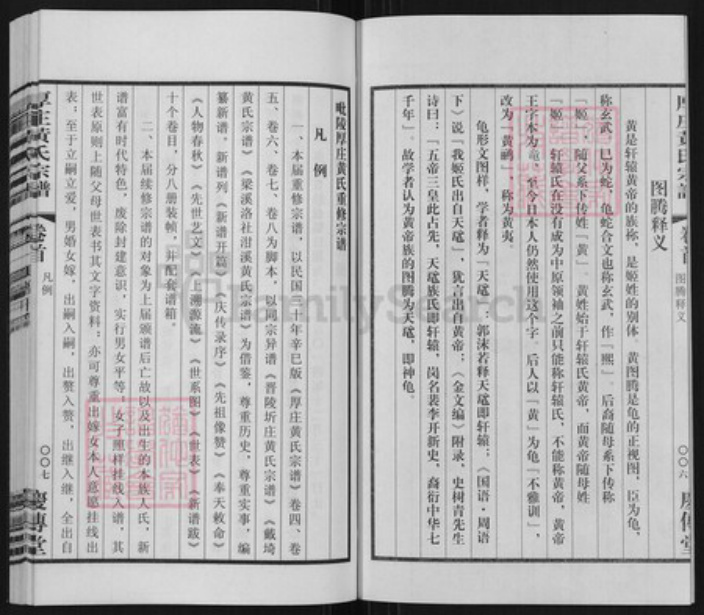 厚庄黄氏宗谱 卷首 图腾释义 〇〇六 庆传堂
图腾释义
黄是轩辕黄帝的族称，是姬姓的别体。黄图腾是龟的正视图，臣为龟，
称玄武，巳为蛇，龟蛇合文也称玄武，作「熙」。后裔随母系下传称
「姬」，随父系下传姓「黄」。黄姓始于轩辕氏黄帝，而黄帝随母姓
「姬」。轩辕氏在没有成为中原领袖之前只能称轩辕氏，不能称黄帝，黄帝
王字本为，至今日本人仍然使用这个字。后人以「黄」为龟「不雅训」，
改为「黄」，称为黄夷。
龟形文图样，学者释为「天鼋」。郭沫若释天鼋即轩辕；《国语·周语
下》说「我姬氏出自天鼋」，犹言出自黄帝；《金文编》附录，史树青先生
诗曰：「五帝三皇此占先，天鼋族氏即轩辕，岗名裴李开新史，裔衍中华七
千年」。故学者认为黄帝族的图腾为天鼋，即神龟。
毗陵厚庄黄氏重修宗谱
凡例
一、本届重修宗谱，以民国三十年辛巳版《厚庄黄氏宗谱》卷四、卷
五、卷六、卷七、卷八为脚本，以同宗异谱《晋陵圻庄黄氏宗谱》《戴埼
黄氏宗谱》《梁溪洛社泔溪黄氏宗谱》为借鉴，尊重历史，尊重实事，编
纂新谱。新谱列《新谱开篇》《庆传录序》《先祖像赞》《奉天敕命》
《人物春秋》《先世艺文》《上溯源流》《世系图》《世表》《新谱跋》
十个卷目，分八册装帧，并配套谱箱。
二、本届续修宗谱的对象为上届颁谱后亡故以及出生的本族人氏，新
谱富有时代特色，废除封建意识，实行男女平等。女子照样挂线入谱，其
世表原则上随父母世表书其文字资料；亦可尊重出嫁女本人意愿挂线出
表；至于立嗣立爱，男婚女嫁，出嗣入嗣，出赘入赘，出继入继，全出自
厚庄黄氏宗谱 卷首 凡例 〇〇七 庆传堂
FamilySearch